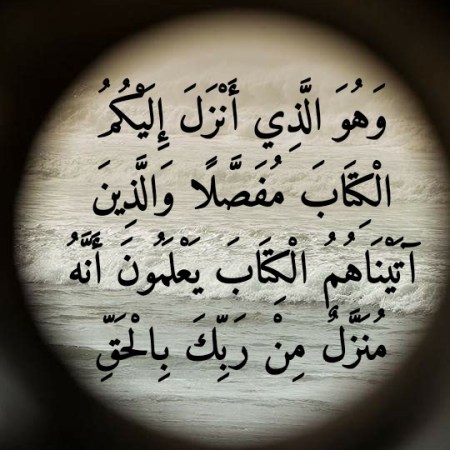 وَهُوَ الَّذِي أَنْزَلَ إِلَيْكُمُ
الْكِتَابَ مُفَصَّلًا وَالَّذِينَ
آتَيْنَاهُمُ الْكِتَابَ يَعْلَمُونَ أَنَّهُ
مُنَزَّلٌ مِنْ رَبِّكَ بِالْحَقِّ